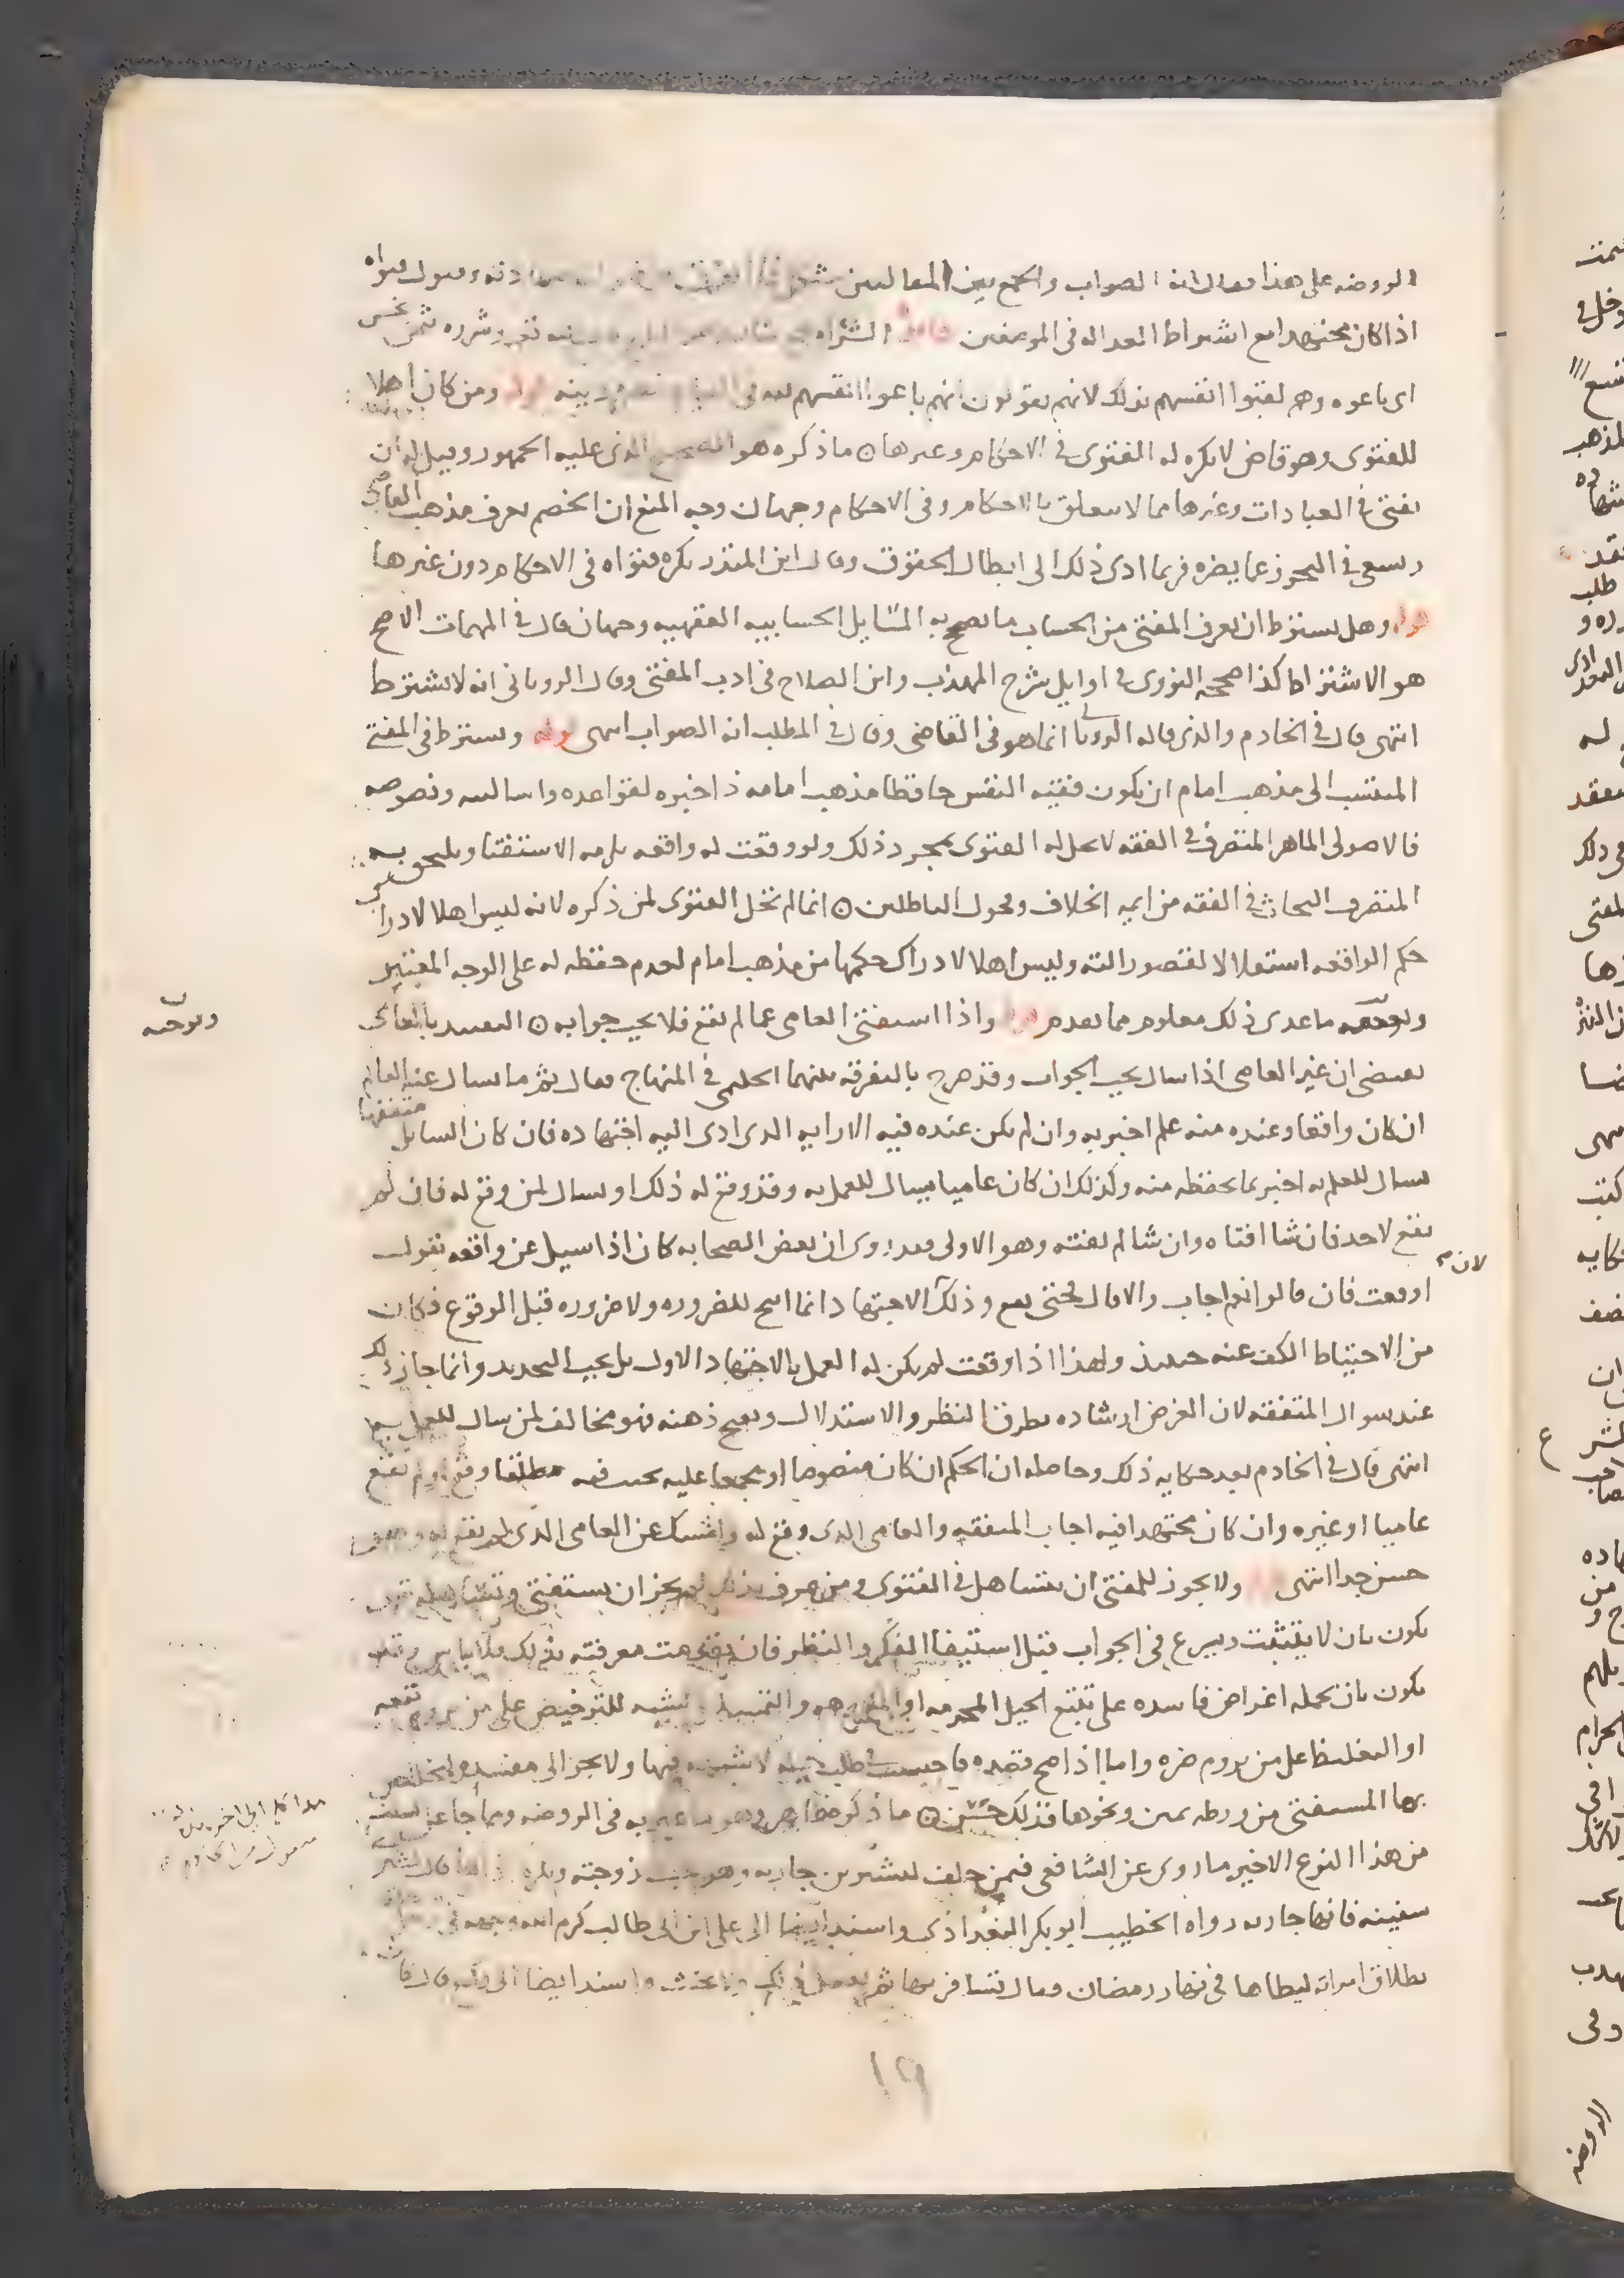 الروضه على هذا فقال انه الصواب والجمع بين المقالتين
اذا كان مجتهدا مع اشتراط العداله في الموضعين الشراه
اى باعوه وهم لقبوا انفسهم بذلك لانهم يقولون انهم باعوا انفسهم لله ومن كان اهلا
للفتوى وهو قاض لا يكره له الفتوى في الاحكام وغيرها ه ما ذكره هو الذى عليه الجمهور وقيل له ان
يفتى في العبادات وغيرها مما لا يتعلق بالاحكام وفى الاحكام وجهان وجه المنع ان الخصم يعرف مذهب القاضى
وسعى في التحرز عما يضره فربما ادى ذلك الى ابطال الحقوق وقال ابن المنذر يكره فتواه في الاحكام دون غيرها
قوله وهل يشترط ان يعرف المفتى من الحساب ما يصحح به المسايل الحسابيه الفقهيه وجهان قال في المهمات الاصح
هو الاشتراط كذا صححه النووى في اوايل شرح المهذب وابن الصلاح في ادب المفتى وقال الرويانى انه لا يشترط
انتهى قال في الخادم والذى قاله الرويانى انما هو في القاضى وقال في المطلب انه الصواب انتهى قوله ويشترط في المفتى
المنتسب الى مذهب امام ان يكون فقيه النفس حافظا مذهب امامه ذا خبره لقواعده واساليبه ونصوصه
فالاصولى الماهر المتصرف في الفقه لا يحل له الفتوى بمجرد ذلك ولو وقعت له واقعه يلزمه الاستفتا ويلحق به
المتصرف البحاث في الفقه من ايمه الخلاف وفحول الناظرين ه انما لم تحل الفتوى لمن ذكره لانه ليس اهلا لادراك
حكم الواقعه استقلالا لقصور الته وليس اهلا لادراك حكمها من مذهب امام لعدم حفظه له على الوجه المعتبر
وتوجيه ما عدى ذلك معلوم مما تقدم قوله واذا استفتى العامى عما لم يقع فلا يجب جوابه ه التقييد بالعامى
يقتضى ان غير العامى اذا سال يجب الجواب وقد صرح بالتفرقه بينهما الحليمى في المنهاج فقال ثم ما يسال عنه العالم
ان كان واقعا وعنده منه علم اخبر به وان لم يكن عنده فيه الا رايه الذى ادى اليه اجتهاده فان كان السايل متفقها
يسال للعلم به اخبر بما يحفظه منه وكذلك ان كان عاميا يسال للعمل به وقد وقع له ذلك او يسال لمن وقع له فان لم
يقع لاحد فان شا افتاه وان شا لم يفته وهو الاولى فقد روى ان بعض الصحابه كان اذا سيل عن واقعه يقول
اوقعت فان قالوا نعم اجاب والا قال حتى يقع وذلك لان الاجتهاد انما ابيح للضروره ولا ضروره قبل الوقوع فكان
من الاحتياط الكف عنه حينيذ ولهذا اذا وقعت لم يكن له العمل بالاجتهاد الاول بل يجب التجديد وانما جاز ذلك
عند سوال المتفقه لان الغرض ارشاده بطرق النظر والاستدلال وتفتيح ذهنه فهو مخالف لمن سال للعمل بها
انتهى قال في الخادم بعد حكايه ذلك وحاصله ان الحكم ان كان منصوصا او مجمعا عليه يجيب فيه مطلقا وقع او لم يقع
عاميا او غيره وان كان مجتهدا فيه اجاب المتفقه والعامى الذى وقع له وامسك عن العامى الذى لم يقع له
حسن جدا انتهى ولا يجوز للمفتى ان يتساهل في الفتوى ومن عرف بذلك لم يجز ان يستفتى وتساهله قد
يكون بان لا يتثبت ويسرع في الجواب قبل استيفا الفكر والنظر فان تقدمت معرفته بذلك فلا باس وقد
يكون بان تحمله اغراض فاسده على تتبع الحيل المحرمه او المكروهه والتمسك بالشبه للترخيص على من يروم نفعه
او التغليظ على من يروم ضره واما اذا صح قصده فاحتسب في طلب حيله لا شبهه فيها ولا تجر الى مفسده ليخلص
بها المستفتى من ورطه يمين ونحوها فذلك حسن ه ما ذكره ظاهر وهو ما عبر به في الروضه ومما جا عن
من هذا النوع الاخير ما روى عن الشافعى فيمن حلف ليشترين جاريه زوجته
سفينه فانها جاريه رواه الخطيب ابو بكر البغدادى واسند ايضا الى على ابن ابى طالب كرم الله وجهه في
بطلاق امراته ليطاها في نهار رمضان فقال تسافر بها ثم واسند ايضا الى
وتوجيه
لان
هذا كله الى اخره
١٢٩